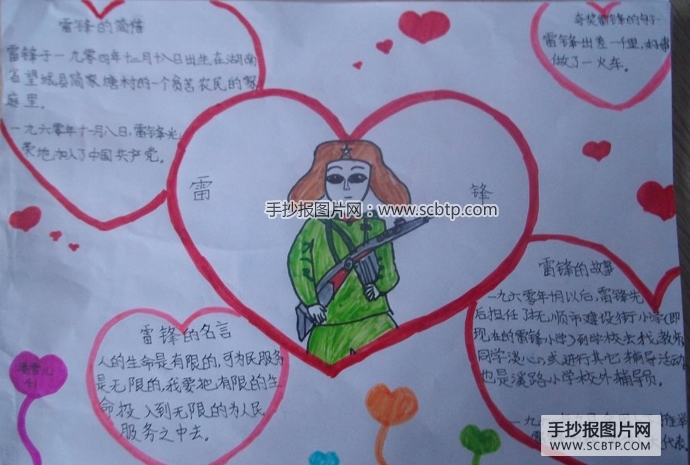 雷锋的简介
雷锋于一九四零年十二月十八日出生在湖南
省望城县简家塘村的一个贫苦农民的家
庭里。
一九六零年十一月八日,雷锋光
荣地加入了中国共产党。
夸奖雷锋的句子
雷锋出差一千里,好事
做了一火车。
雷 锋
手抄报图片网:www.scbtp.com
雷锋的名言
人的生命是有限的,可为民服务
是无限的,我要把有限的生
命投入到无限的为人民
服务之中去。
雷锋的故事
一九六零年十月以后,雷锋先
后担任了抚顺市建设街小学(即
现在的雷锋小学)
同学谈心
也是 路小学校外辅导员。
手抄报图片网
www.SCBTP.com